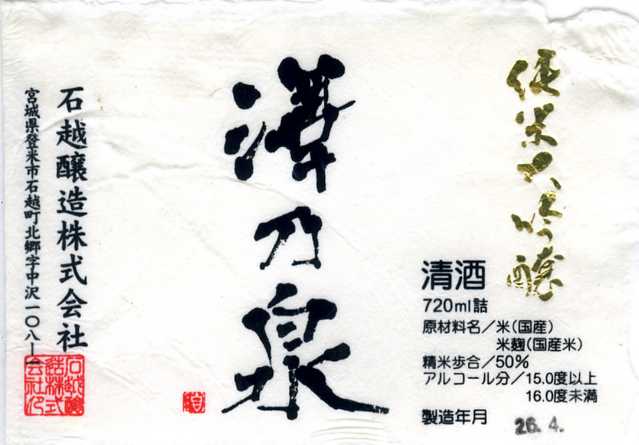 純米大吟醸
澤乃泉
清酒
720ml詰
原材料名／米(国産)
米麹(国産米)
精米歩合／50%
アルコール分／15.0度以上
16.0度未満
製造年月 26.4.
石越醸造株式会社
宮城県登米市石越町北郷字中沢一〇八ー一
石越醸
造株式
会社印